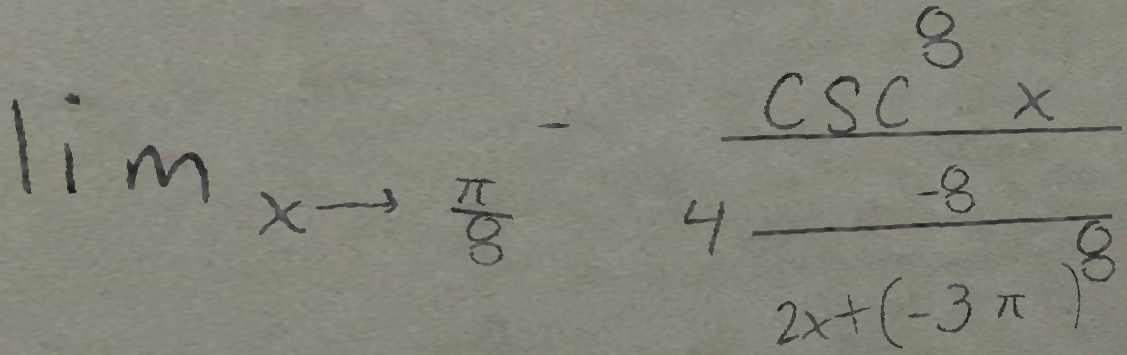 \lim_{x \to \frac{\pi}{8}^{-}} \frac{\csc^{8} x}{4 \frac{-8}{2x+(-3\pi)^{8}}}